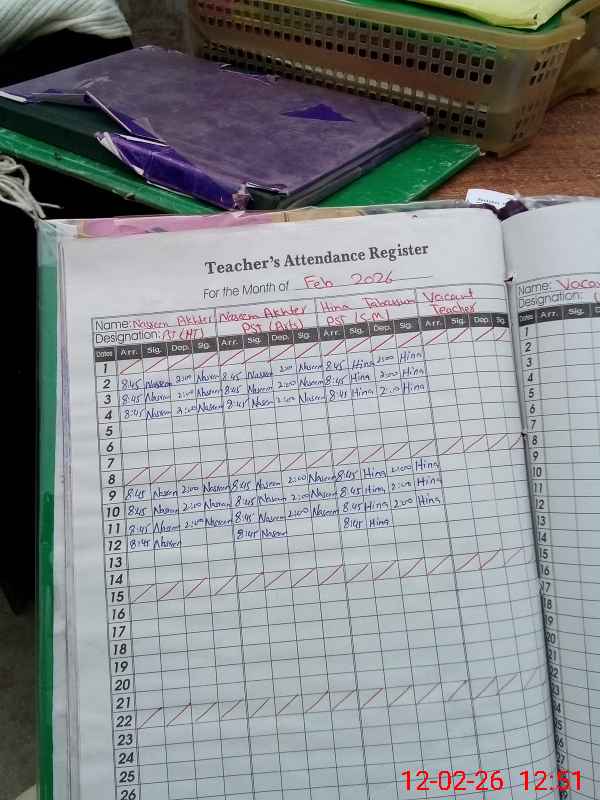 Teacher's Attendance Register
For the Month of Feb 2026
Name: Naseem Akhter Naseem Akhter Hina Tabassum Vacant
Designation: PST (HT) PST (Arts) PST (S.M) Teacher
Dates Arr. Sig. Dep. Sig. Arr. Sig. Dep. Sig. Arr. Sig. Dep. Sig. Arr. Sig. Dep. Sig.
1
2 8:45 Naseem 2:00 Naseem 8:45 Naseem 2:00 Naseem 8:45 Hina 2:00 Hina
3 8:45 Naseem 2:00 Naseem 8:45 Naseem 2:00 Naseem 8:45 Hina 2:00 Hina
4 8:45 Naseem 2:00 Naseem 8:45 Naseem 2:00 Naseem 8:45 Hina 2:00 Hina
5
6
7
8
9 8:45 Naseem 2:00 Naseem 8:45 Naseem 2:00 Naseem 8:45 Hina 2:00 Hina
10 8:45 Naseem 2:00 Naseem 8:45 Naseem 2:00 Naseem 8:45 Hina 2:00 Hina
11 8:45 Naseem 2:00 Naseem 8:45 Naseem 2:00 Naseem 8:45 Hina 2:00 Hina
12 8:45 Naseem 8:45 Naseem 8:45 Hina
13
14
15
16
17
18
19
20
21
22
23
24
25
26
Name:
Designation:
Dates Arr. Sig.
1
2
3
4
5
6
7
8
9
10
11
12
13
14
15
16
17
18
19
20
21
22
12-02-26 12:51